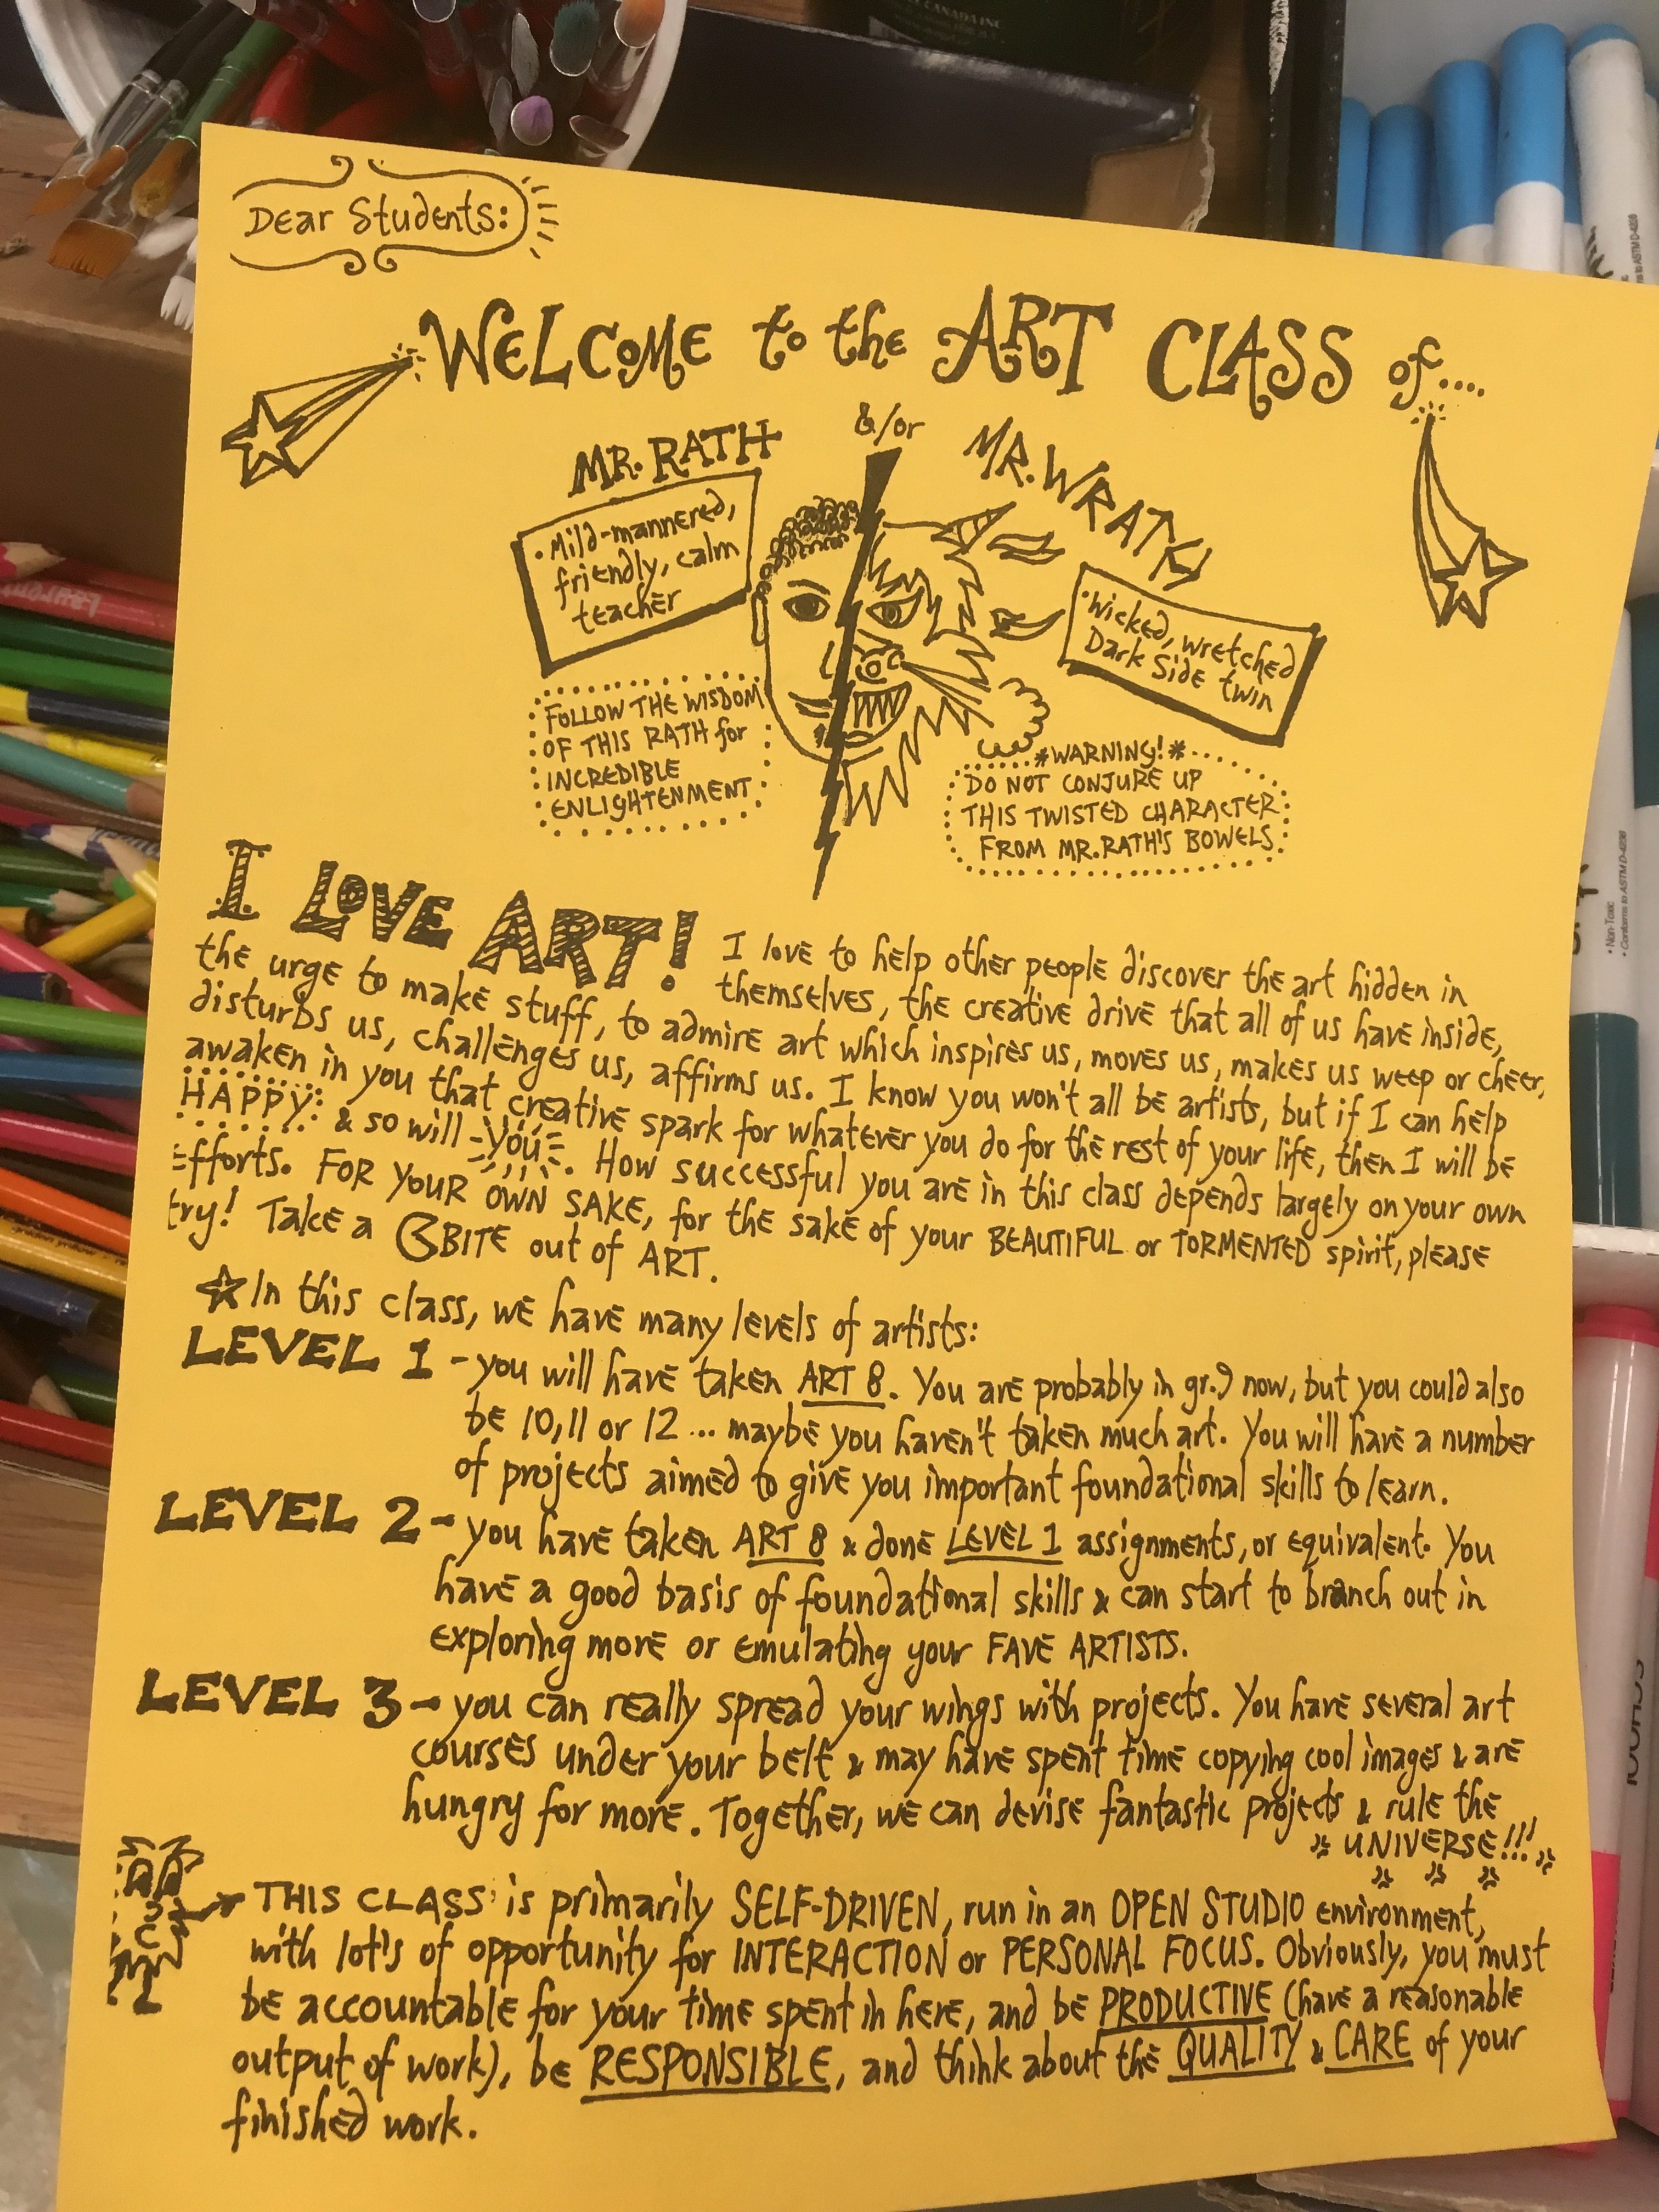 CANADA INC
Dear Students:
WELCOME to the ART CLASS of....
MR. RATH
&/or
MR. WRATH
• Mild-mannered,
friendly, calm
teacher
• Wicked, wretched
Dark Side twin
FOLLOW THE WISDOM
OF THIS RATH for
INCREDIBLE
ENLIGHTENMENT
*WARNING!*
DO NOT CONJURE UP
THIS TWISTED CHARACTER
FROM MR. RATH'S BOWELS.
I LOVE ART! I love to help other people discover the art hidden in
themselves, the creative drive that all of us have inside,
the urge to make stuff, to admire art which inspires us, moves us, makes us weep or cheer,
disturbs us, challenges us, affirms us. I know you won't all be artists, but if I can help
awaken in you that creative spark for whatever you do for the rest of your life, then I will be
HAPPY & so will you. How successful you are in this class depends largely on your own
Efforts. FOR YOUR OWN SAKE, for the sake of your BEAUTIFUL or TORMENTED spirit, please
try! Take a BITE out of ART.
In this class, we have many levels of artists:
LEVEL 1 - you will have taken ART 8. You are probably in gr.9 now, but you could also
be 10, 11 or 12 ... maybe you haven't taken much art. You will have a number
of projects aimed to give you important foundational skills to learn.
LEVEL 2 - you have taken ART 8 & done LEVEL 1 assignments, or equivalent. You
have a good basis of foundational skills & can start to branch out in
exploring more or emulating your FAVE ARTISTS.
LEVEL 3 - you can really spread your wings with projects. You have several art
courses under your belt & may have spent time copying cool images & are
hungry for more. Together, we can devise fantastic projects & rule the
UNIVERSE!!!
THIS CLASS is primarily SELF-DRIVEN, run in an OPEN STUDIO environment,
with lot's of opportunity for INTERACTION or PERSONAL FOCUS. Obviously, you must
be accountable for your time spent in here, and be PRODUCTIVE (have a reasonable
output of work), be RESPONSIBLE, and think about the QUALITY & CARE of your
finished work.
• Non-Toxic
• Conforms to ASTM D-4236